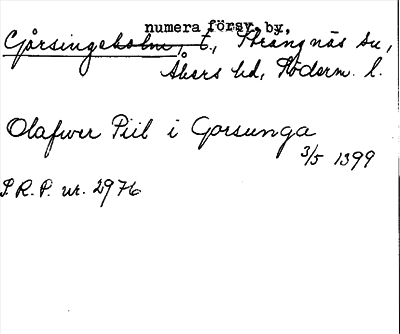 numera försv. by.
Gårsingeholm, t., Strängnäs su,
Åkers hd, Söderm. l.
Olafwer Piil i Gorsunga
3/5 1399
S.R.P. nr. 2976